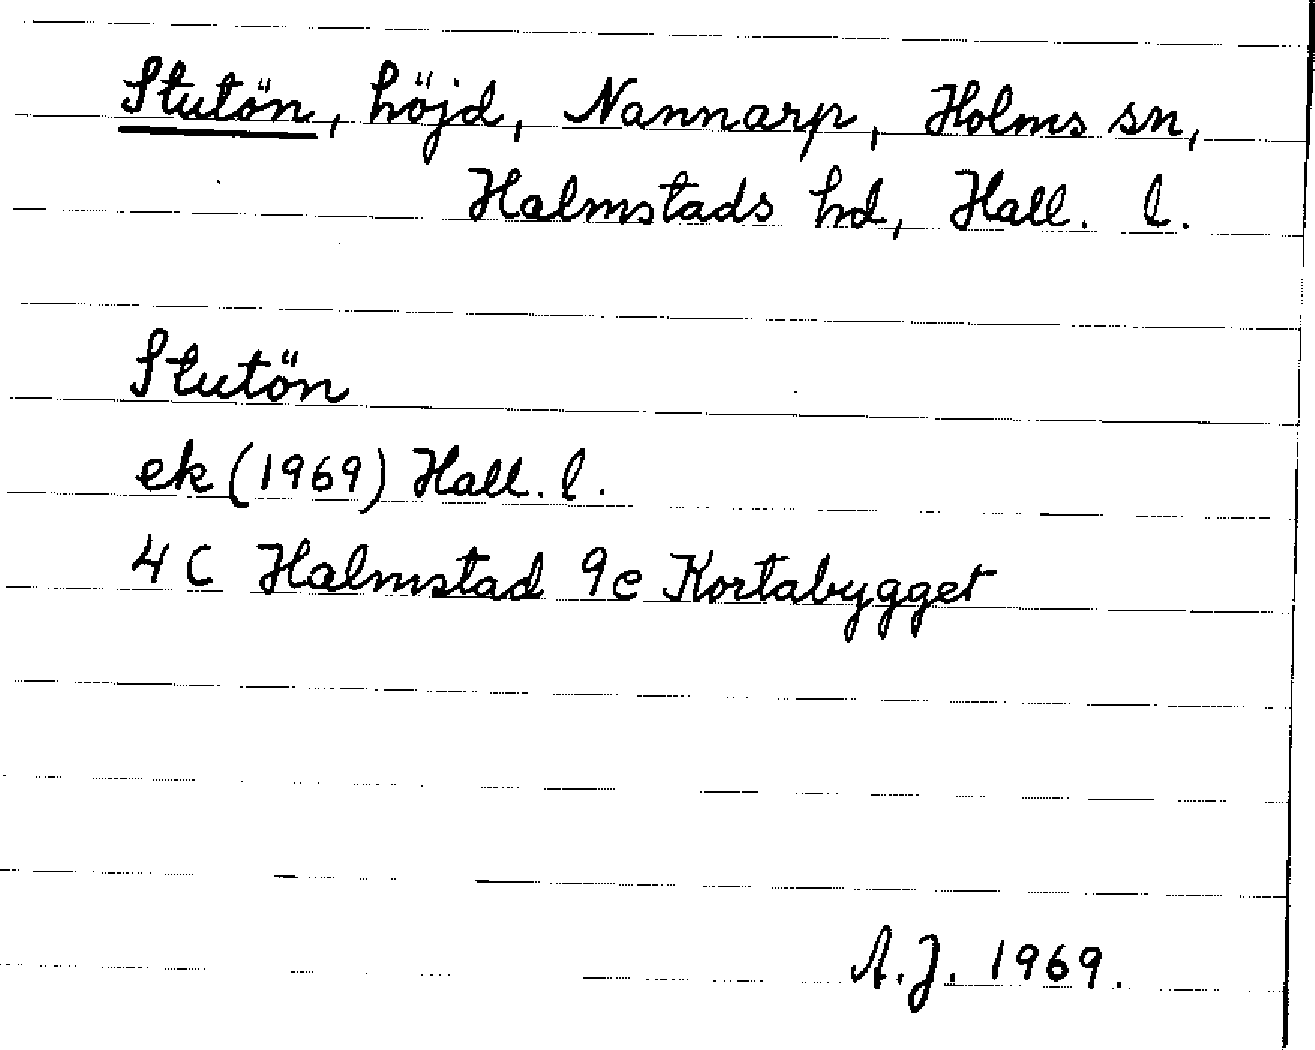 Stutön, höjd, Nannarp, Holms sn,
Halmstads hd, Hall. l.
Stutön
ek (1969) Hall. l.
4 C Halmstad 9e Kortabygget
A.J. 1969.